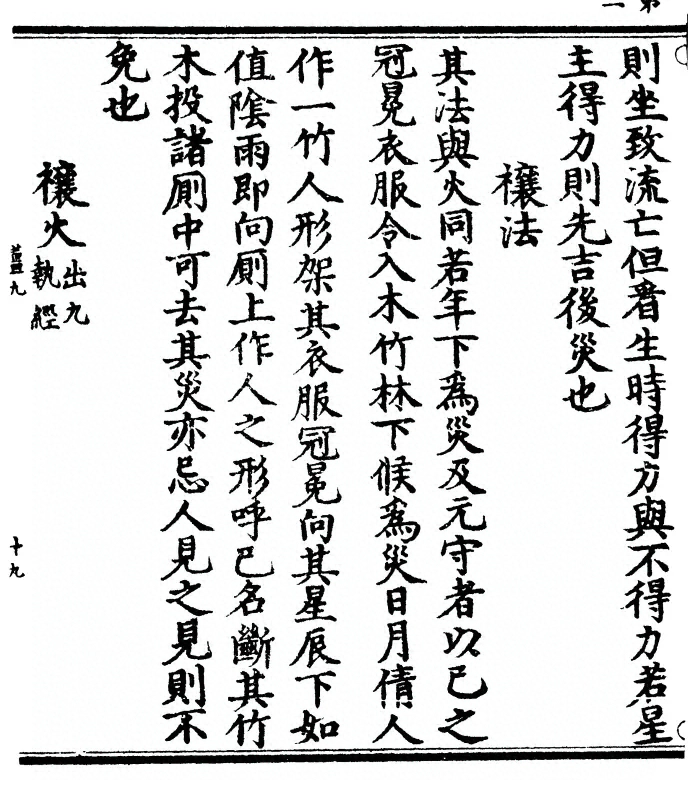 則坐致流亡但看生時得方與不得力若星
主得力則先吉後災也
禳法
其法與火同若年下為災及元守者以己之
冠冕衣服令入木竹林下候為災日月倩人
作一竹人形架其衣服冠冕向其星辰下如
值陰雨即向厠上作人之形呼己名斷其竹
木投諸厠中可去其災亦忌人見之見則不
免也
禳火出九執經
十九